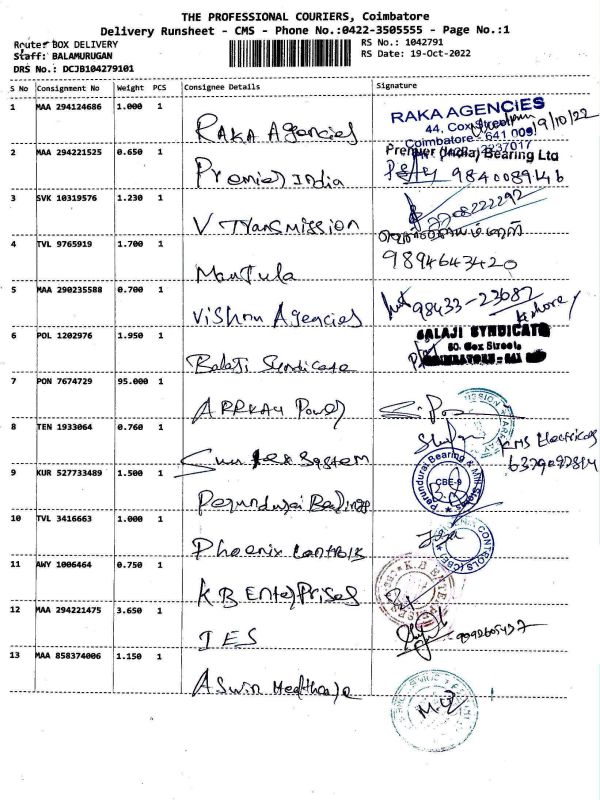 THE PROFESSIONAL COURIERS, Coimbatore
Delivery Runsheet - CMS - Phone No.:0422-3505555 - Page No.:1
Route: BOX DELIVERY
RS No.: 1042791
Staff: BALAMURUGAN
RS Date: 19-Oct-2022
DRS No.: DCJB104279101
S No Consignment No Weight PCS Consignee Details Signature
1 MAA 294124686 1.000 1 RAKA Agencies
RAKA AGENCIES
44, Cox Street
Coimbatore - 641 001
19/10/22
2 MAA 294221525 0.650 1 Premier India
Premier (India) Bearing Ltd
9840089146
3 SVK 10319576 1.230 1 V Transmission
4 TVL 9765919 1.700 1 Manjula
9894643420
5 MAA 290235588 0.700 1 Vishnu Agencies
98433-23682
Kishore
6 POL 1202976 1.950 1 Balaji Syndicate
BALAJI SYNDICATE
80, Cox Street,
COIMBATORE - 641
7 PON 7674729 95.000 1 ARRKAY Power
8 TEN 1933064 0.760 1 Sun System
KMS Electricals
9 KUR 527733489 1.500 1 Perundurai Bearings
Perundurai Bearing & Mill Stores
CBE-9
10 TVL 3416663 1.000 1 Phoenix Controls
PHOENIX CONTROLS (CBE)
11 AWY 1006464 0.750 1 KB Enterprises
K.B ENTERPRISES
12 MAA 294221475 3.650 1 IES
13 MAA 858374006 1.150 1 Aswin Healthcare